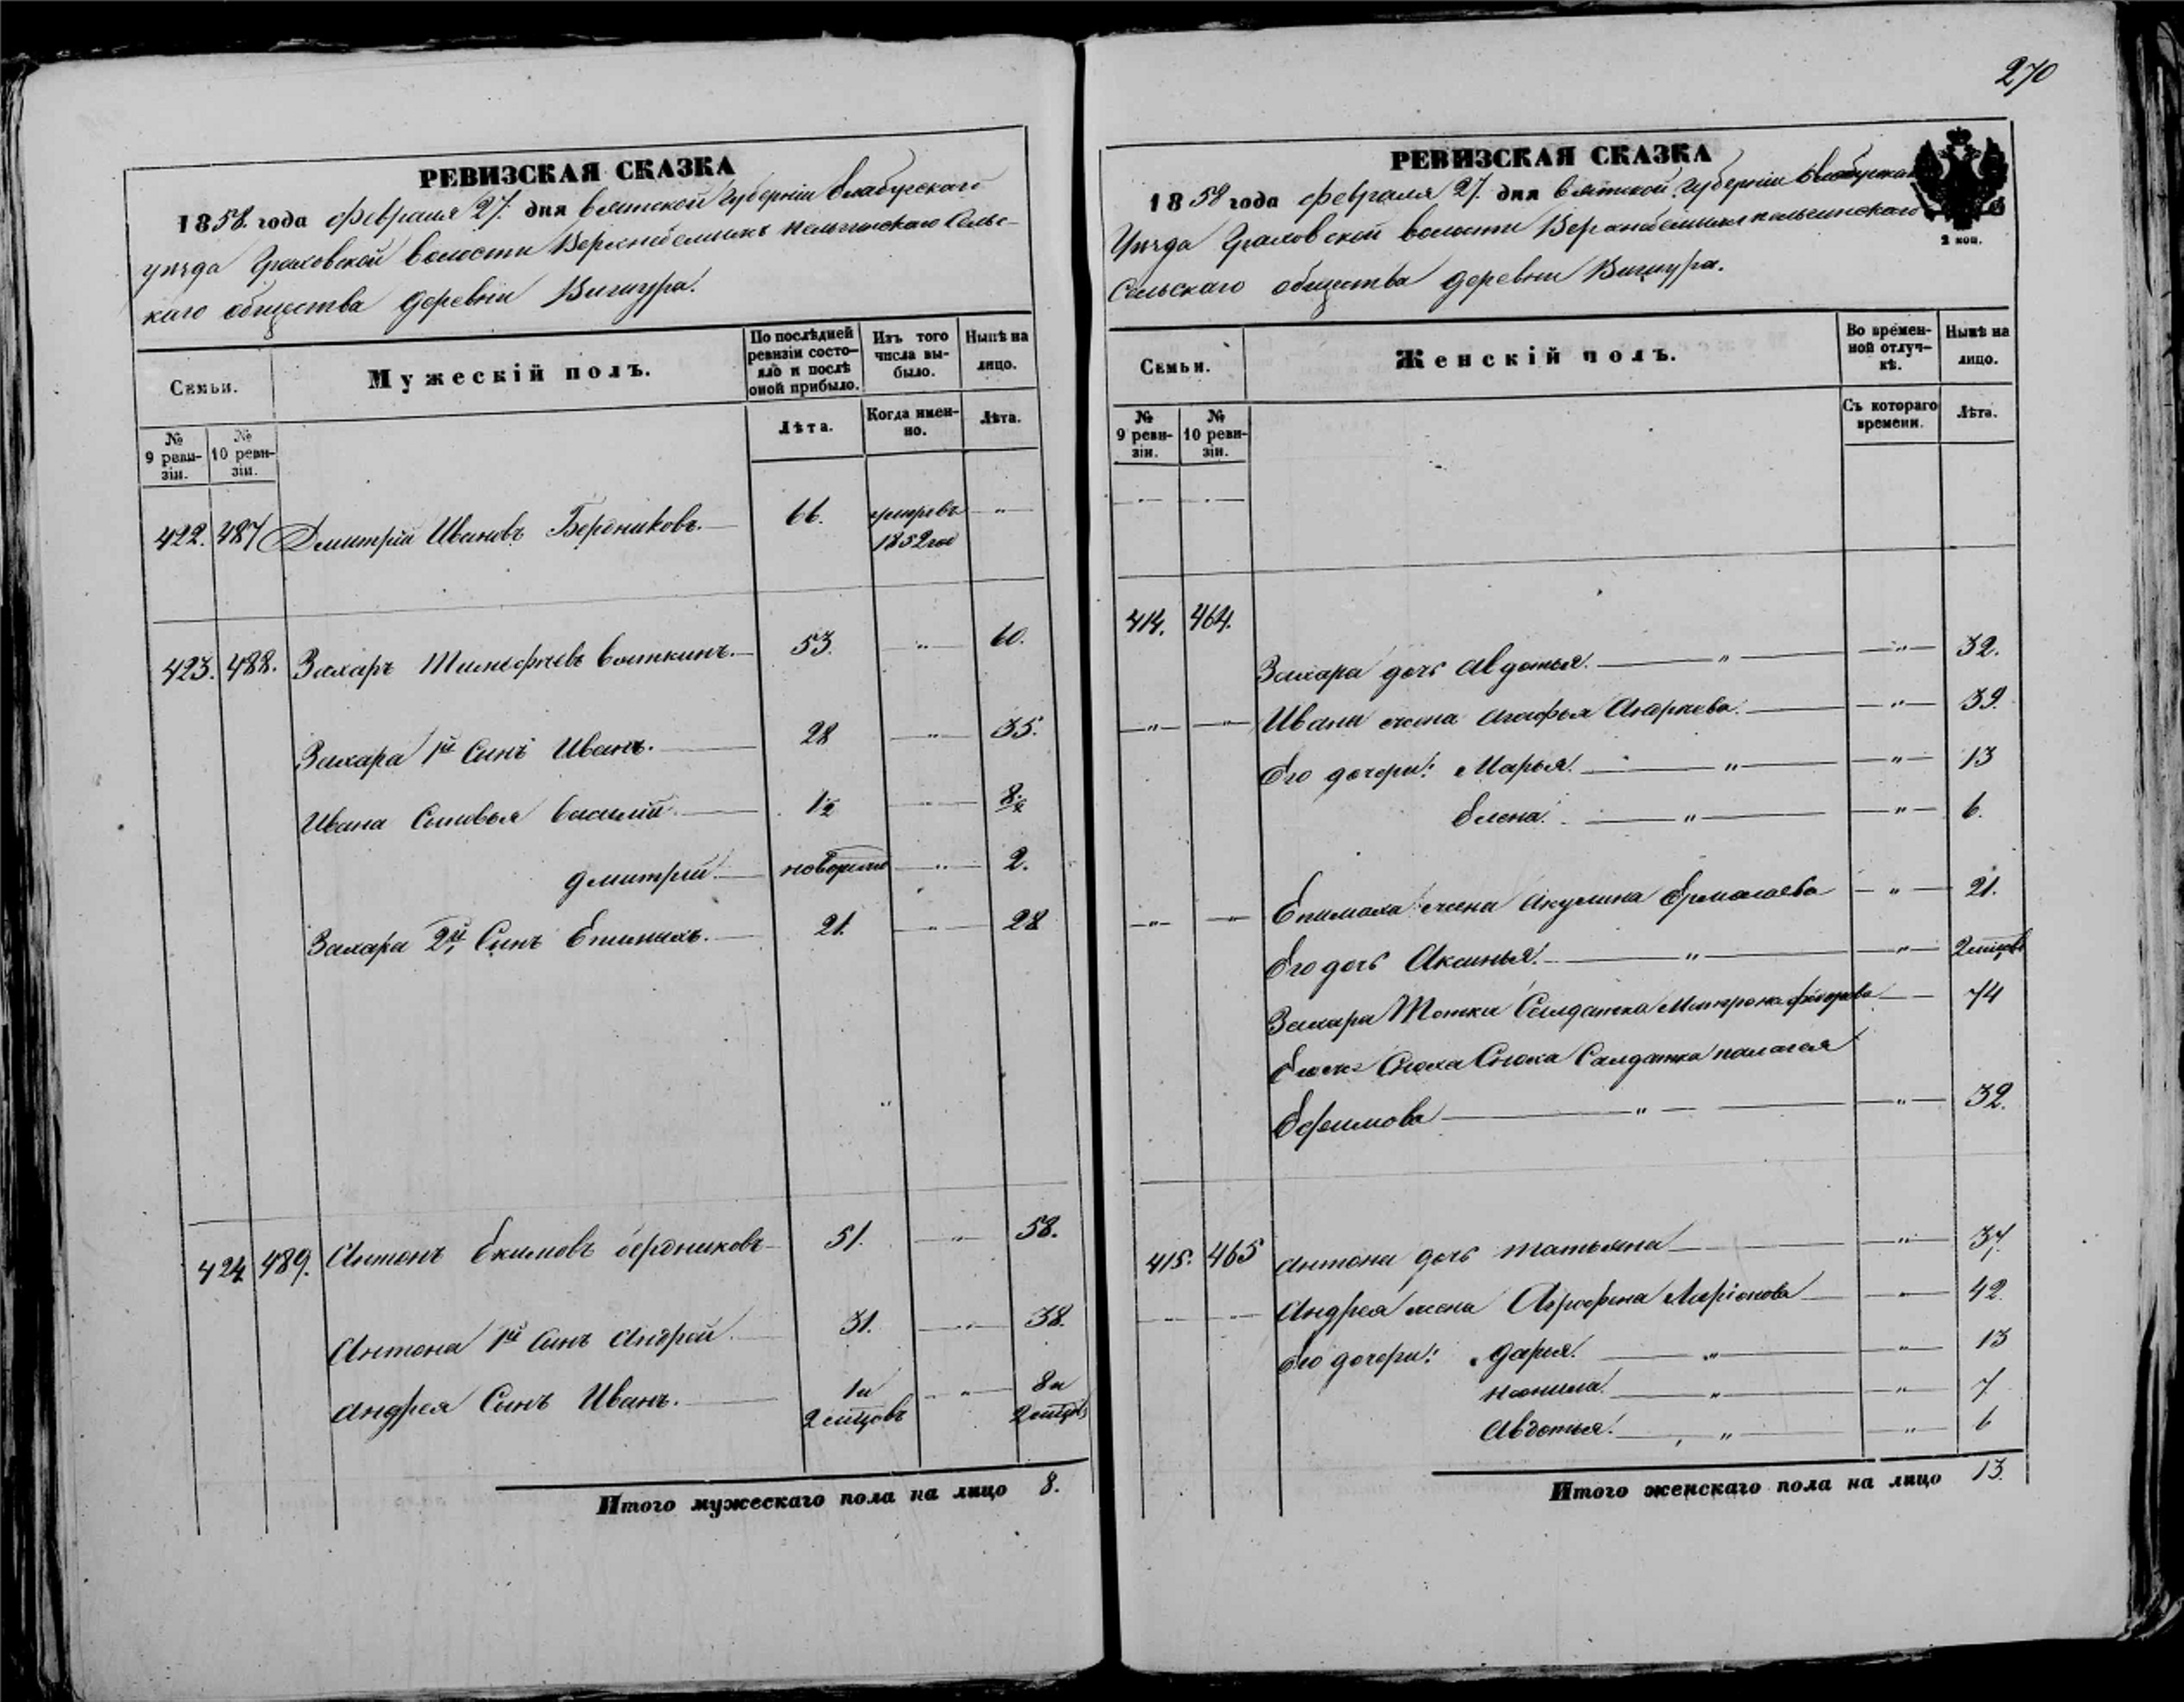 270
РЕВИЗСКАЯ СКАЗКА
1858. года февраля 27. дня Вятской Губерніи Елабугскаго
уѣзда Граховской волости Верхне Сельс-
каго общества деревни Вишура.
Семьи.
Мужескій полъ.
По послѣдней ревизіи состояло и послѣ оной прибыло.
Изъ того числа выбыло.
Нынѣ на лицо.
№ 9 ревизіи.
№ 10 ревизіи.
Лѣта.
Когда именно.
Лѣта.
422. 487 Дмитрій Ивановъ Бердниковъ. — 66. умеръ въ 1852 год "
423. 488. Захаръ Тимофѣевъ Вяткинъ. — 53. " 60.
Захара 1й Сынъ Иванъ. — 28 " 35.
Ивана Сыновья Василій — 1½ " 8½
Дмитрій — новорож " 2.
Захара 2й Сынъ Епимахъ. — 21. " 28
424 489. Антонъ Екимовъ Бердниковъ — 51. " 58.
Антона 1й Сынъ Андрей — 31. " 38.
Андрея Сынъ Иванъ. — 1 и 2 мѣцовъ " 8 и 2 мѣцовъ
Итого мужескаго пола на лицо 8.
РЕВИЗСКАЯ СКАЗКА
1858 года февраля 27. дня Вятской Губерніи
Уѣзда Граховской волости
Сельскаго общества деревни Вишура.
2 коп.
Семьи.
Женскій полъ.
Во временной отлучкѣ.
Нынѣ на лицо.
№ 9 ревизіи.
№ 10 ревизіи.
Съ котораго времени.
Лѣта.
414. 464. Захара дочь Авдотья. — " — " — 32.
" " Ивана жена Агафья Андреева. — " — 39.
Его дочери: Марья. — " — " — 13
Елена. — " — " — 6.
" " Епимаха жена Акулина Ермолаева — " — 21.
Его дочь Аксинья. — " — " — 2 мѣцовъ
Захара Тотки Салдатка Матрона Федорова — 74
Сноха Сноха Салдатка Палагея
Ефимова — " — " — 32.
415. 465 Антона дочь Татьяна — " — 37.
Андрея жена Агрофена Ларіонова — " — 42.
Его дочери: Дарья. — " — " — 13
Неонила. — " — " — 7
Авдотья. — " — " — 6
Итого женскаго пола на лицо 13.